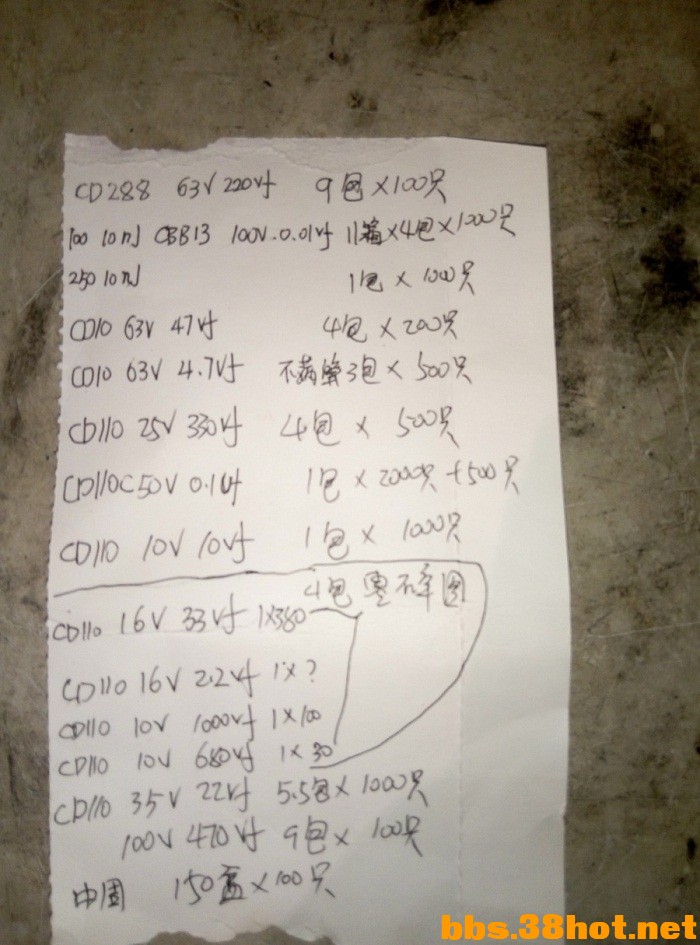 CD288 63V 220uf 9包×100只
100 10nJ CBB13 100V.0.01uf 11箱×4包×1000只
250 10nJ 1包×1000只
CD10 63V 47uf 4包×200只
CD10 63V 4.7uf 不满 3包×500只
CD110 25V 330uf 4包×500只
CD110C50V 0.1uf 1包×2000只+500只
CD110 10V 10uf 1包×1000只
4包零碎
CD110 16V 33uf 1×380
CD110 16V 2.2uf 1×?
CD110 10V 1000uf 1×100
CD110 10V 680uf 1×30
CD110 35V 22uf 5.5包×1000只
100V 470uf 9包×100只
150盒×100只
bbs.38hot.net